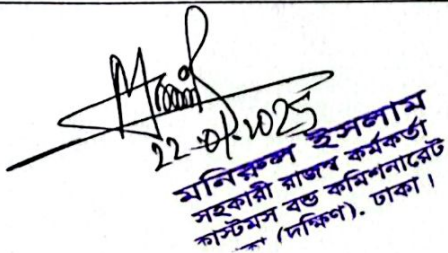 22-01-2025
মনিরুল ইসলাম
সহকারী রাজস্ব কর্মকর্তা
কাস্টমস বন্ড কমিশনারেট
(দক্ষিণ). ঢাকা।